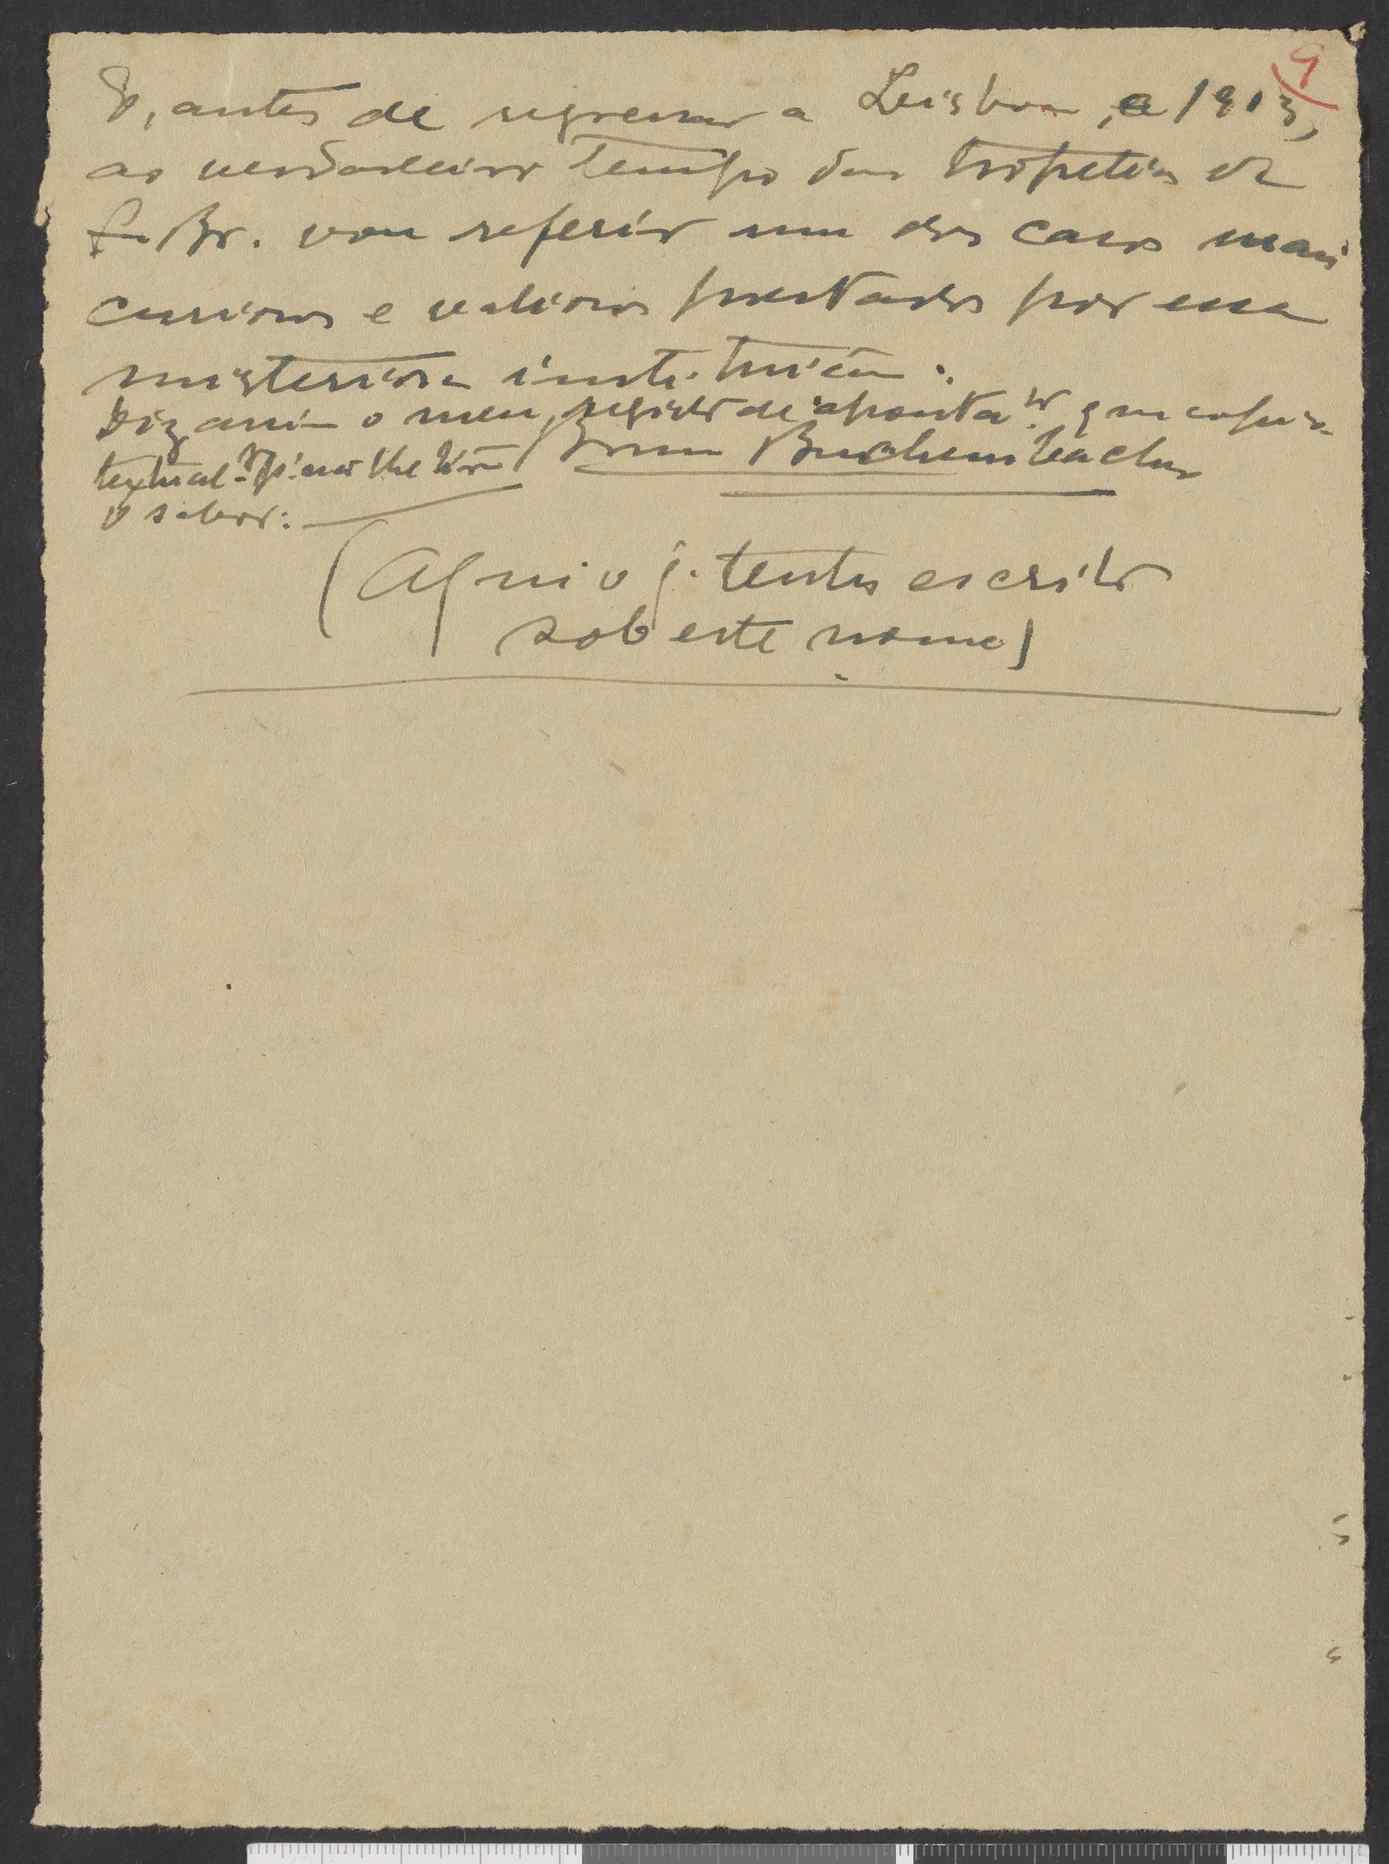 9
E, antes de regressar a Leisboa, a 1913,
ao verdadeiro tempo das tropelias da
f. Br. vou referir um dos casos mais
curiosos e valiosos prestados por essa
misteriosa instituição.
Diz assim o meu registo de aponta.tos que copio
textual.te p.ª não lhe tirar Bruno Buchenbacher
o sabor:
(Aqui o j. tentos escrito
sob este nome)